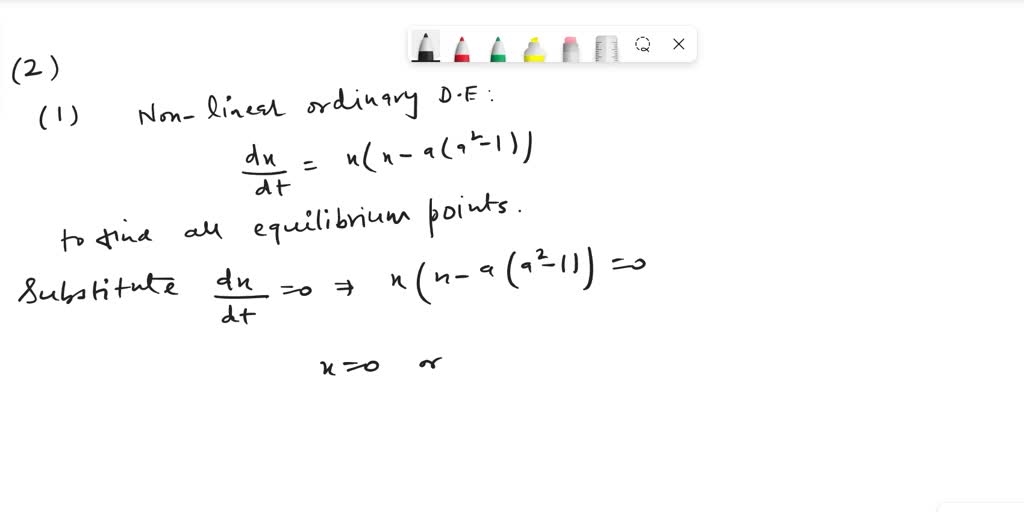 (2)
(1) Non-linear ordinary D.E:
dx/dt = x(x - a(a²-1))
to find all equilibrium points.
Substitute dx/dt = 0 ⇒ x(x - a(a²-1)) = 0
x = 0 or